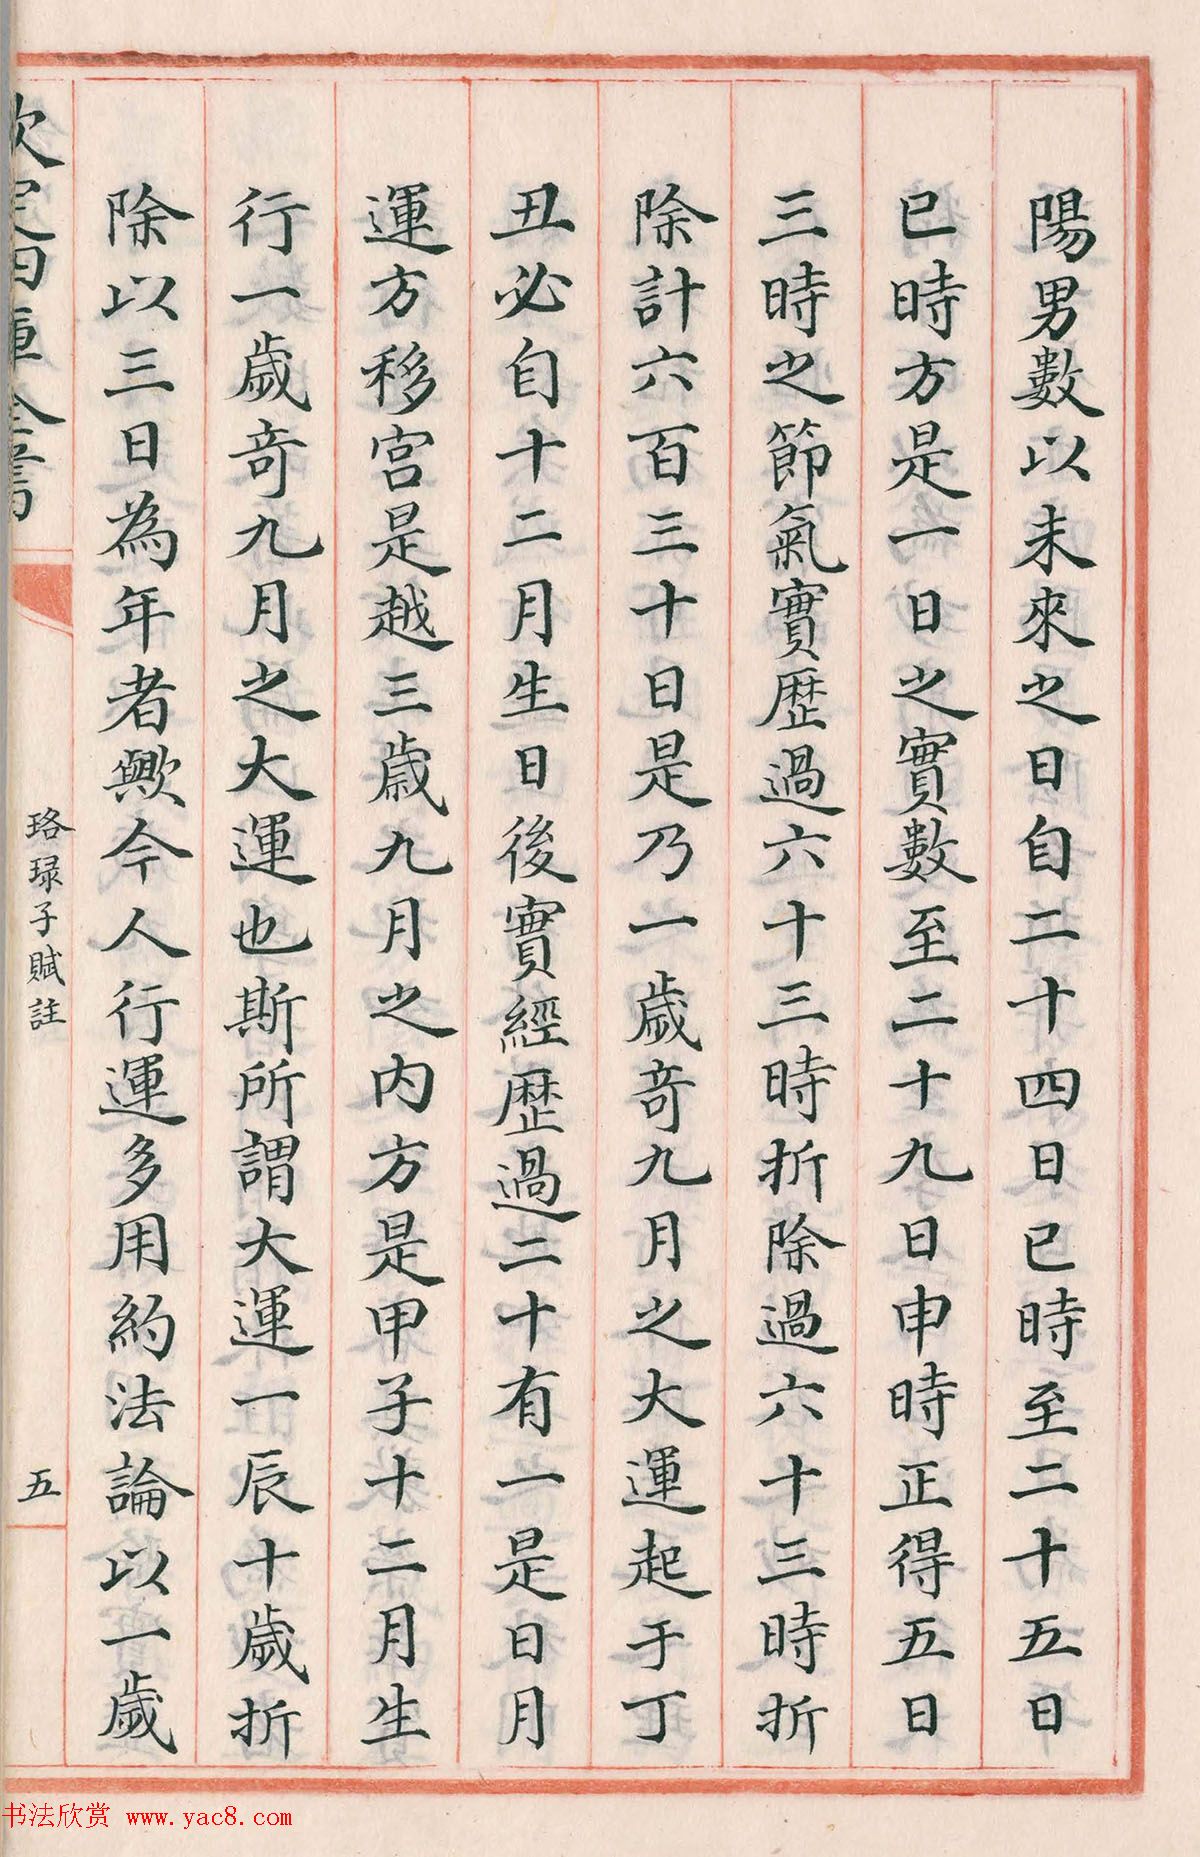 陽男數以未來之日自二十四日巳時至二十五日
巳時方是一日之實數至二十九日申時正得五日
三時之節氣實歷過六十三時折除過六十三時折
除計六百三十日是乃一歲竒九月之大運起于丁
丑必自十二月生日後實經歷過二十有一是日月
運方移宮是越三歲九月之内方是甲子十二月生
行一歲竒九月之大運也斯所謂大運一辰十歲折
除以三日為年者歟今人行運多用約法論以一歲
欽定四庫全書
珞琭子賦註
五
书法欣赏 www.yac8.com